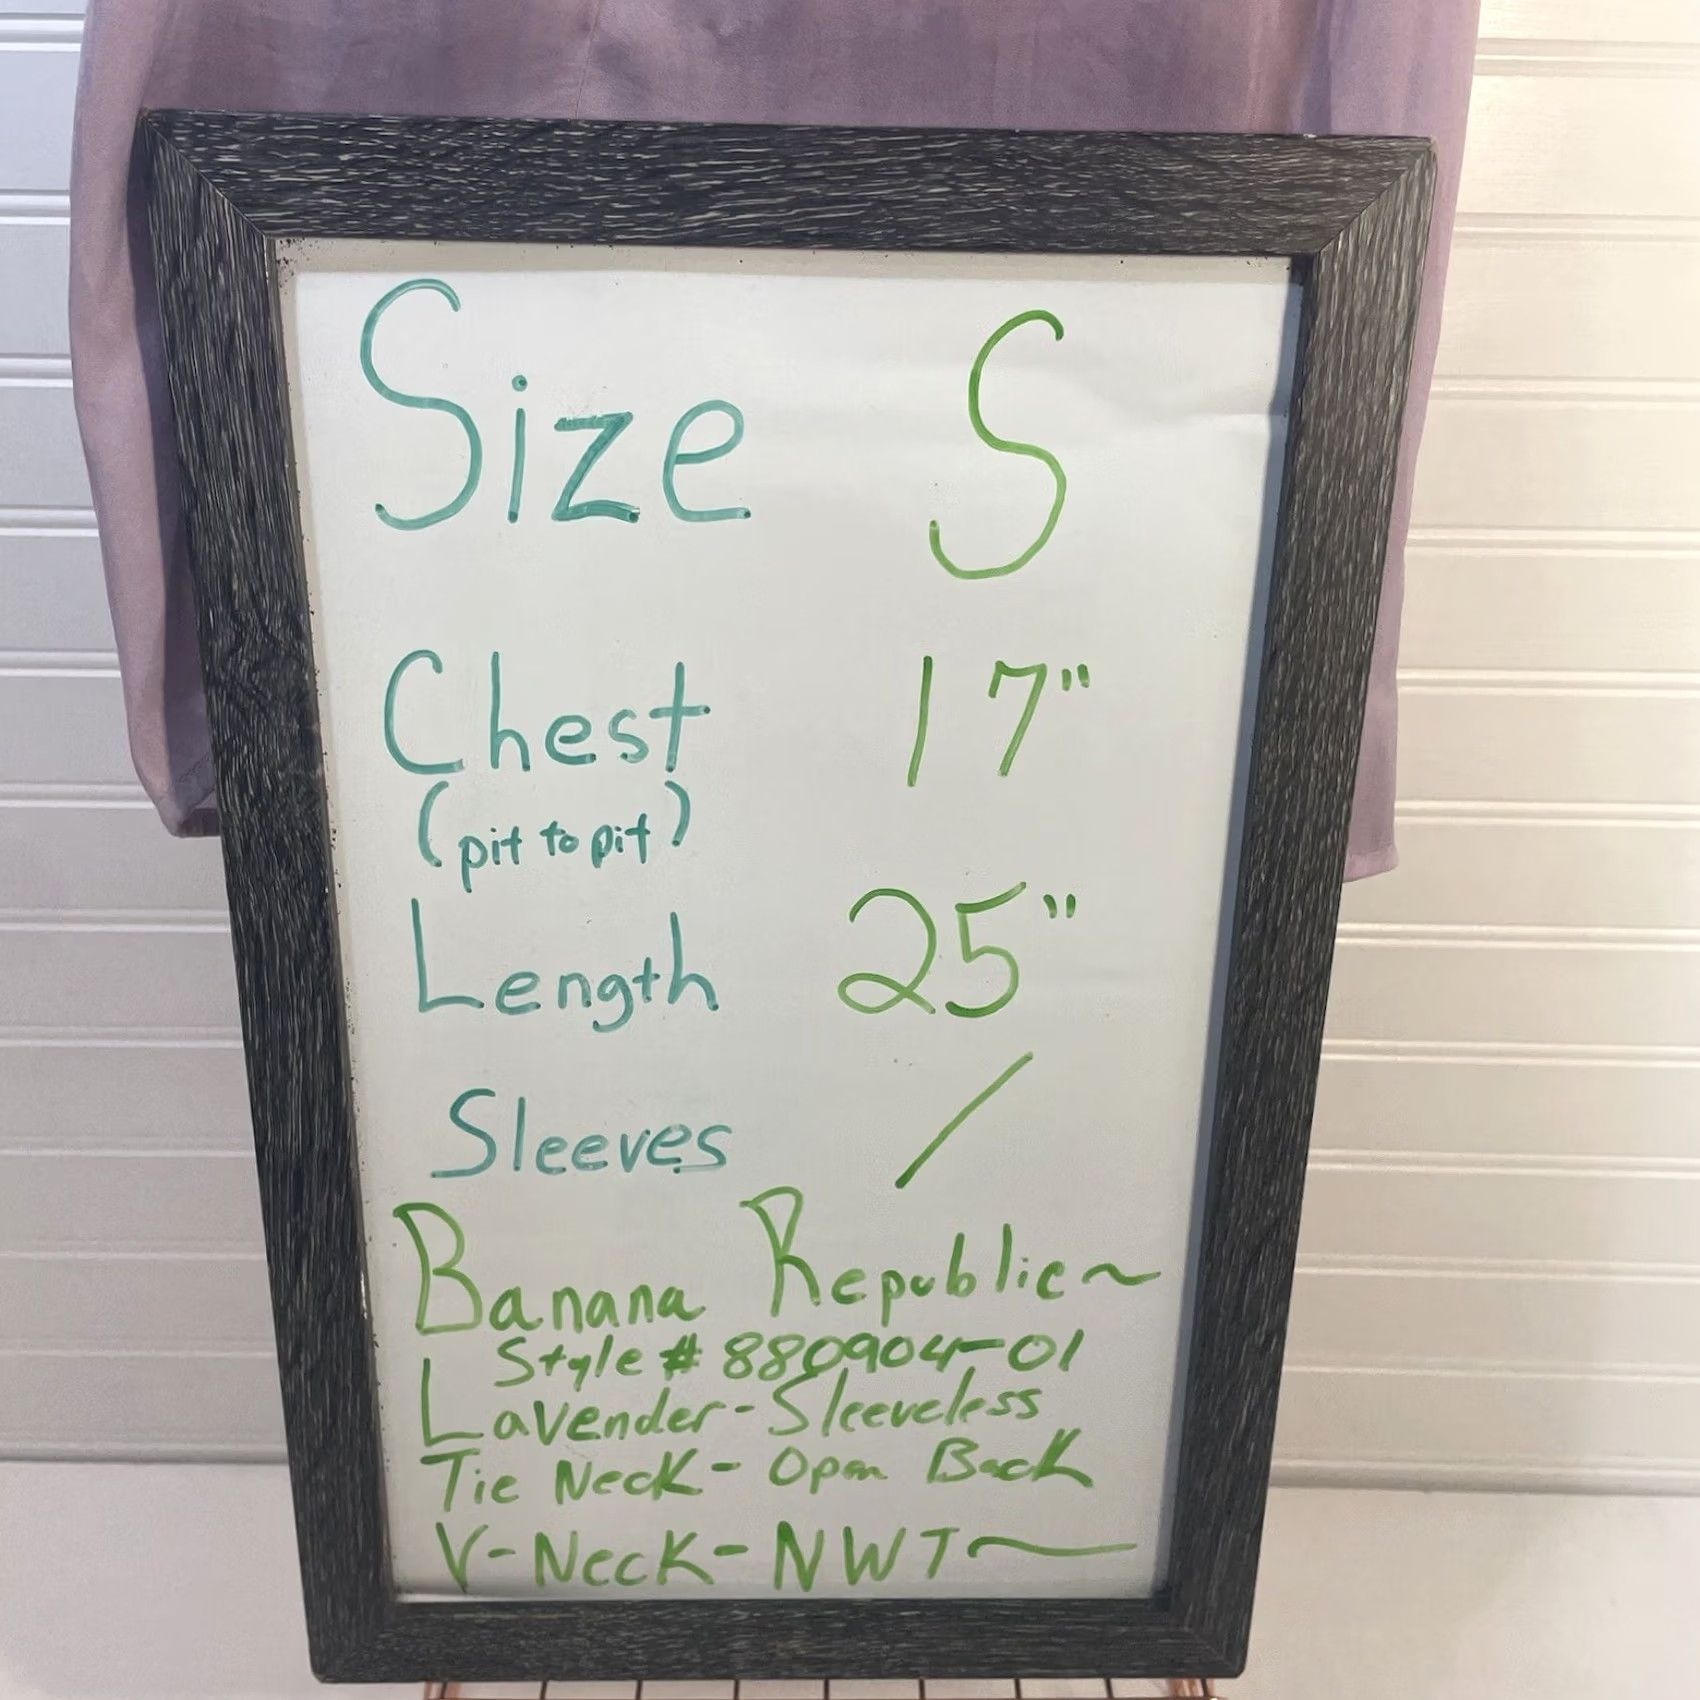 Size S
Chest 17"
(pit to pit)
Length 25"
Sleeves /
Banana Republic~
Style # 880904-01
Lavender-Sleeveless
Tie Neck - Open Back
V-Neck-NWT~